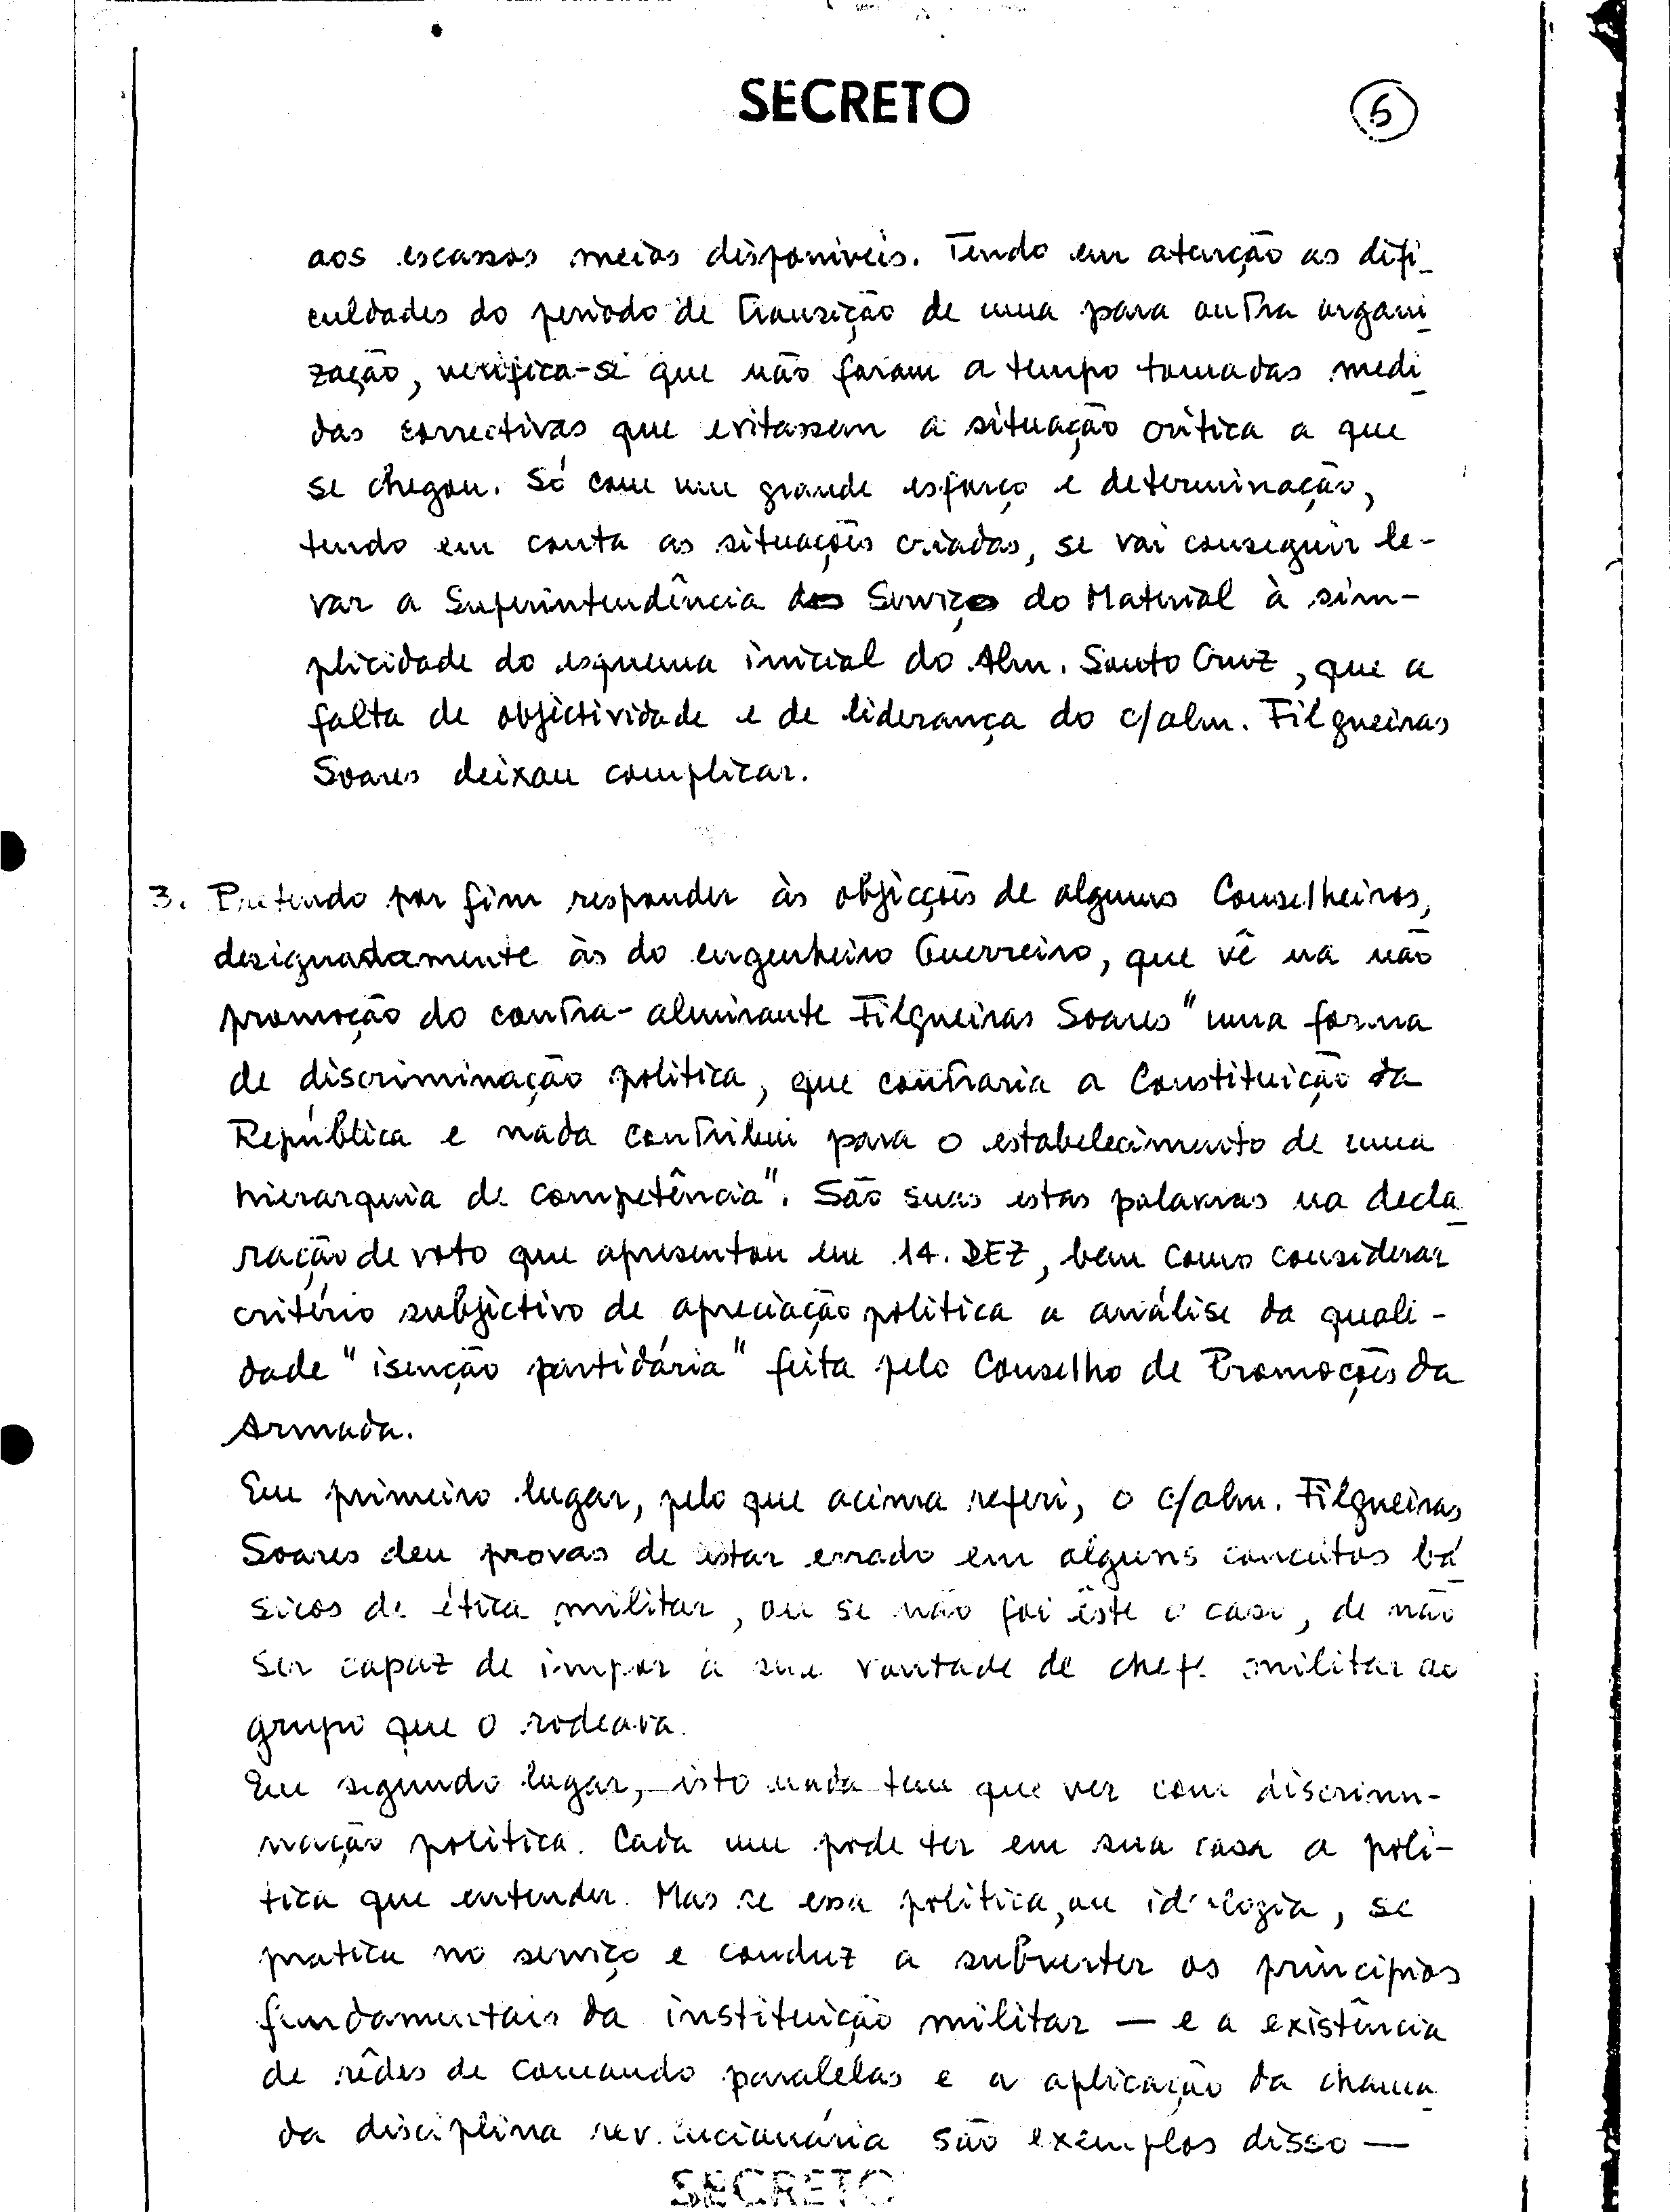 SECRETO
5
aos escassos meios disponíveis. Tendo em atenção as difi_
culdades do periodo de transição de uma para outra organi_
zação, verifica-se que não foram a tempo tomadas medi_
das correctivas que evitassem a situação crítica a que
se chegou. Só com um grande esforço e determinação,
tendo em conta as situações criadas, se vai conseguir le-
var a Superintendência dos Serviços do Material à sim-
plicidade do esquema inicial do Alm. Souto Cruz, que a
falta de objectividade e de liderança do c/alm. Filgueiras
Soares deixou complicar.
3. Pretendo por fim responder às objecções de alguns Conselheiros,
designadamente às do engenheiro Guerreiro, que vê na não
promoção do contra-almirante Filgueiras Soares "uma forma
de discriminação política, que contraria a Constituição da
República e nada contribui para o estabelecimento de uma
hierarquia de competência". São suas estas palavras na decla_
ração de voto que apresentou em 14.DEZ, bem como considerar
critério subjectivo de apreciação política a análise da quali-
dade "isenção partidária" feita pelo Conselho de Promoções da
Armada.
Em primeiro lugar, pelo que acima referi, o c/alm. Filgueiras
Soares deu provas de estar errado em alguns conceitos bá_
sicos de ética militar, ou se não foi êste o caso, de não
ser capaz de impor a sua vontade de chefe militar ao
grupo que o rodeava.
Em segundo lugar, isto nada tem que ver com discrimi-
nação política. Cada um pode ter em sua casa a polí-
tica que entender. Mas se essa política, ou ideologia, se
pratica no serviço e conduz a subverter os princípios
fundamentais da instituição militar — e a existência
de rêdes de comando paralelas e a aplicação da chama_
da disciplina revolucionária são exemplos disso —
SECRETO